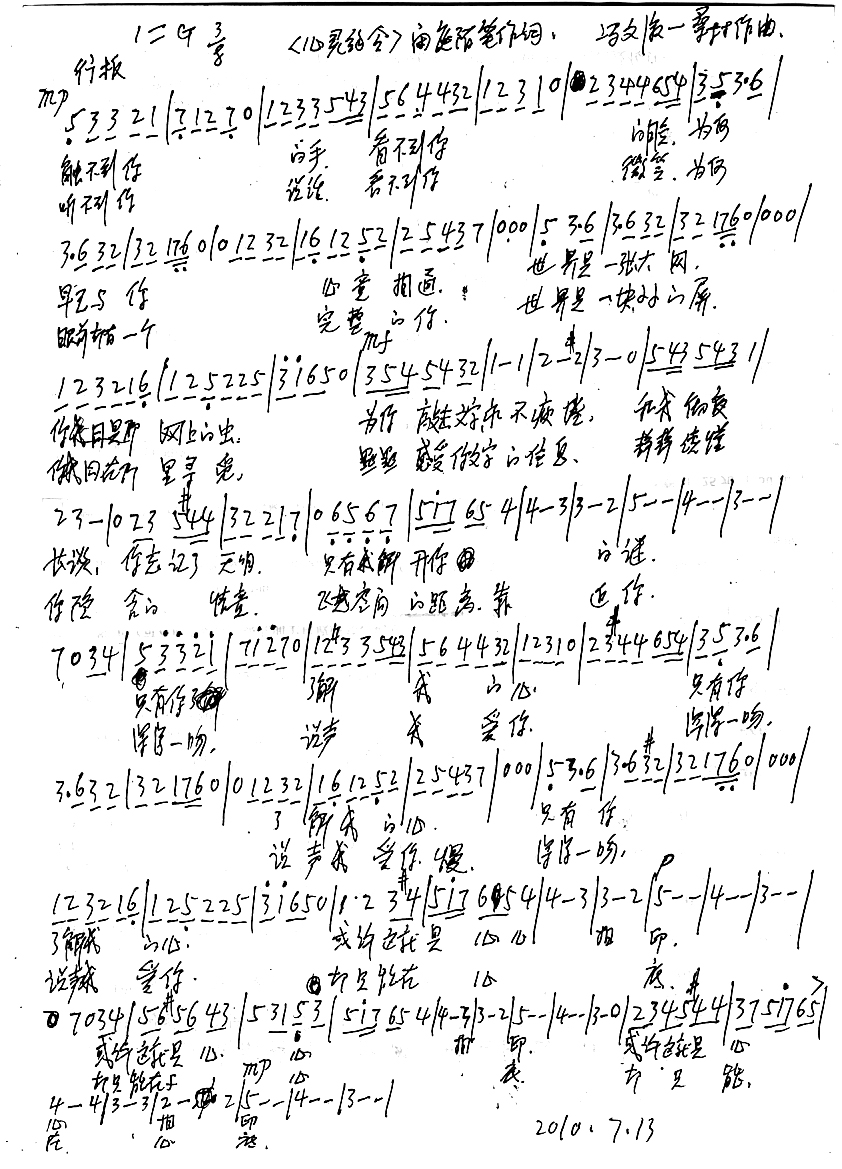 1=G 3/4 <心灵约会> 作词: 作曲.
行板
mp 5 3 3 2 1|7 1 2 7 0|1 2 3 3 5 4 3|5 6 4 4 3 2|1 2 3 1 0|2 3 4 4 6 5 4|3 5 3. 6|
触不到你 的手. 看不到你 的脸. 为何
听不到你 说话 看不到你 微笑. 为何
3. 6 3 2|3 2 1 7 6 0|0 1 2 3 2|1 6 1 2 5 2|2 5 4 3 7|0 0 0|5 3. 6|3. 6 3 2|3 2 1 7 6 0|0 0 0|
早已与 你 心意 相通. 世界是一张大网.
眼前却有一个 完整 的你. 世界是一块小小的屏.
mf
1 2 3 2 1 6|1 2 5 2 2 5|3 1 6 5 0|3 5 4 5 4 3 2|1 - 1|2 - #2|3 - 0|5 4 3 5 4 3 1|
你我同是那 网上的虫. 为你 敲击文字 不疲惫. 和我 彻夜
你我同在那 里寻觅. 默默 感受你文字的信息. 静静 读懂
2 3 -|0 2 3 #5 4 4|3 2 2 1 7|0 6 5 6 7|5 1 7 6 5 4|4 - 3|3 - 2|5 - -|4 - -|3 - -|
长谈. 你忘记了 天明. 只有我解开你 的谜.
你隐 含的 情意. 飞越空间的距离. 靠 近你.
7 0 3 4|5 3 3 2 1|7 1 2 7 0|1 2 #3 3 5 4 3|5 6 4 4 3 2|1 2 3 1 0|2 #3 4 4 6 5 4|3 5 3. 6|
只有你 了解 我 的心. 只有你
深深一吻. 说声 我 爱你. 深深一吻.
3. 6 3 2|3 2 1 7 6 0|0 1 2 3 2|1 6 1 2 5 2|2 5 4 3 7|0 0 0|5 3. 6|3. 6 #3 2|3 2 1 7 6 0|0 0 0|
了解我 的心. 只有 你
说声我 爱你. 慢. 深深一吻.
p
1 2 3 2 1 6|1 2 5 2 2 5|3 1 6 5 0|1. 2 3 #4|5 1 7 6 5 4|4 - 3|3 - 2|5 - -|4 - -|3 - -|
了解我 的心. 或许这就是 心心 相 印.
说声我 爱你. 却只能在 心 底.
7 0 3 4|5 #6 5 6 4 3|5 3 1 5 3|5 1 7 6 5 4|4 - 3|3 - 2|5 - -|4 - -|3 - 0|2 3 4 5 #4 4|3 7 5 1 7 6 5|
或许这就是 心 心 相 印. 或许这就是 心
却只能在 心 底. 却 只 能.
mp
4 - 4|3 - 3|2 - 2|5 - -|4 - -|3 - -|
心 相 印
在 心 底.
2010.7.13